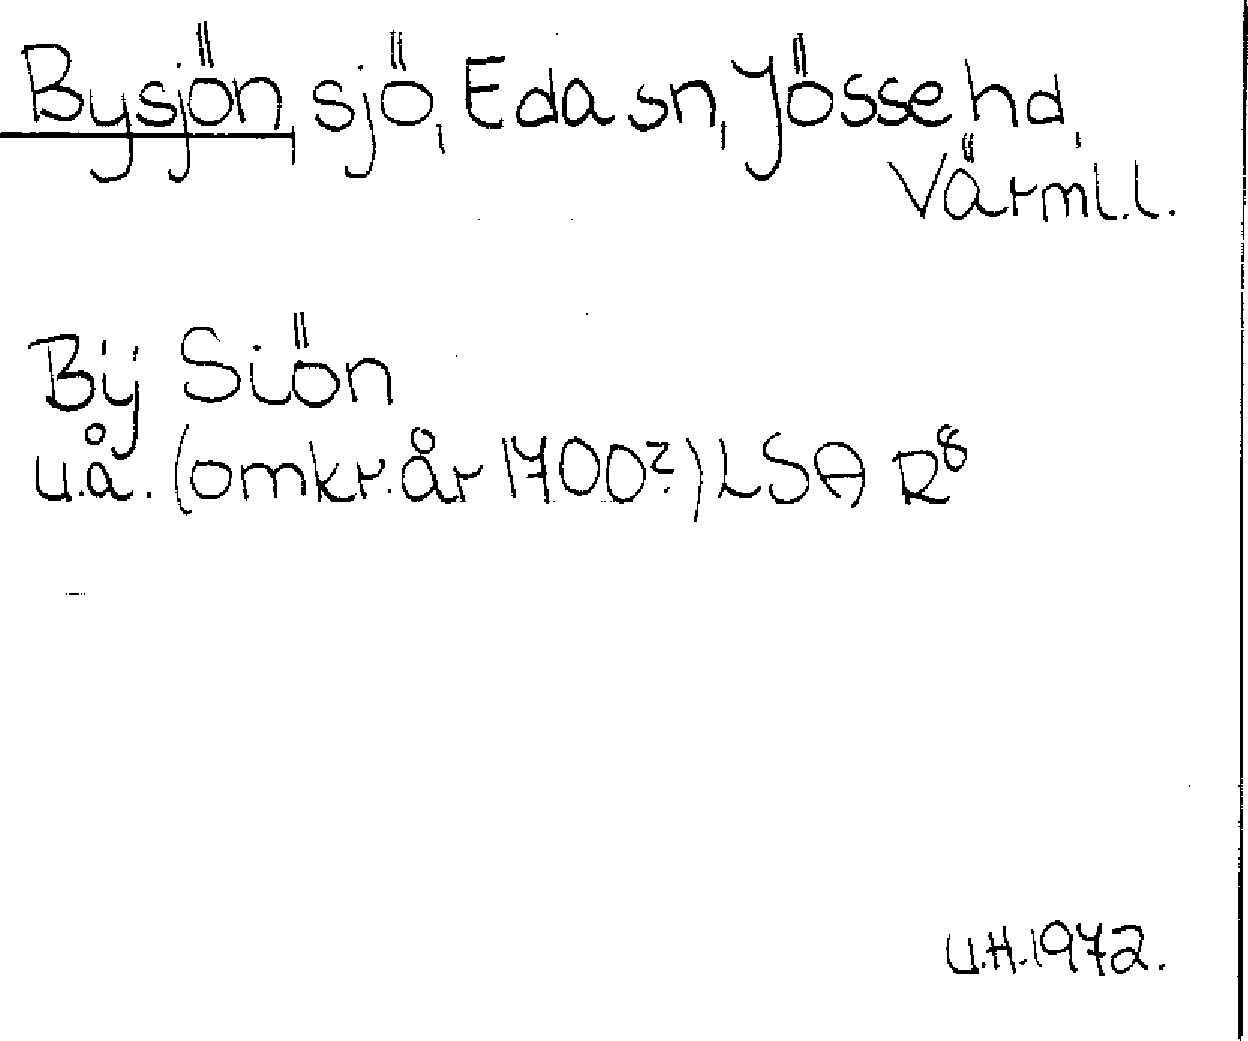 Bysjön, sjö, Eda sn, Jösse hd,
Värml. l.
Bÿ Siön
u.å. (omkr. år 1700?) LSA R8
U.H. 1972.